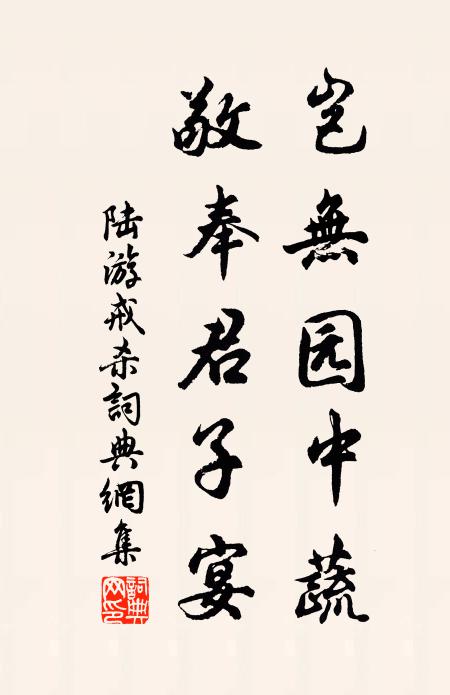 岂無园中蔬
敬奉君子宴
陆游戒杀詞典網集
詞典网印